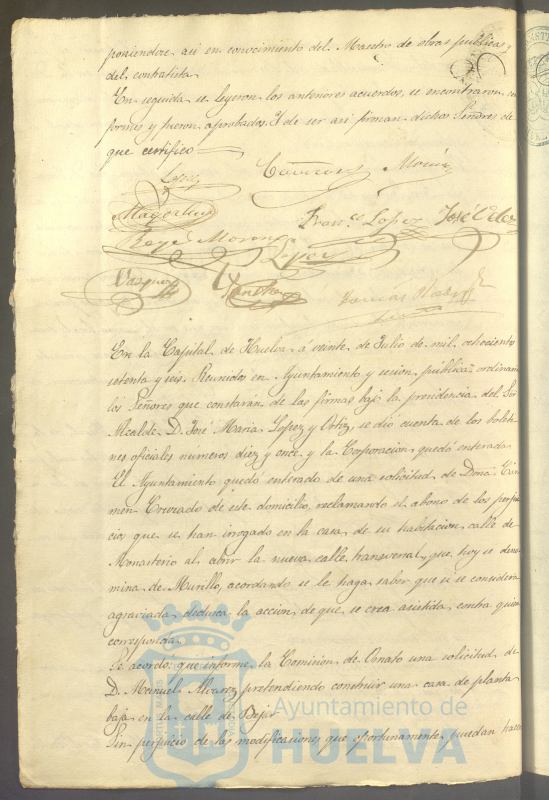 poniendose así en conocimiento del Maestro de obras publicas y
del contratista
En seguida se leyeron los anteriores acuerdos, se encontraron con
formes y fueron aprobados. Y de ser así firman dichos Señores de
que certifico
Lopez
Magdalena
Franco Lopez José
Reyes Moreno Lopez
Vazquez Sanchez
En la Capital de Huelva á veinte de Julio de mil ochocientos
setenta y seis. Reunidos en Ayuntamiento y sesion pública ordinaria
los Señores que constarán de las firmas bajo la presidencia del Sor
Alcalde D. José Maria Lopez y Ortiz, se dió cuenta de los boleti
nes oficiales numeros diez y once y la Corporacion quedó enterada
El Ayuntamiento quedó enterado de una solicitud de Doña Cár
men de este domicilio, reclamando el abono de los perjui
cios que se han irrogado en la casa de su habitacion calle de
Monasterio al abrir la nueva calle transversal, que hoy se deno
mina de Murillo, acordando se le haga saber que si se considera
agraviada deduzca la accion de que se crea asistida contra quien
corresponda
Se acordó que informe la Comision de Ornato una solicitud de
D. Manuel Alvarez pretendiendo construir una casa de planta
baja en la calle de Bejar
Sin perjuicio de las modificaciones que oportunamente puedan hacer
Ayuntamiento de
HUELVA